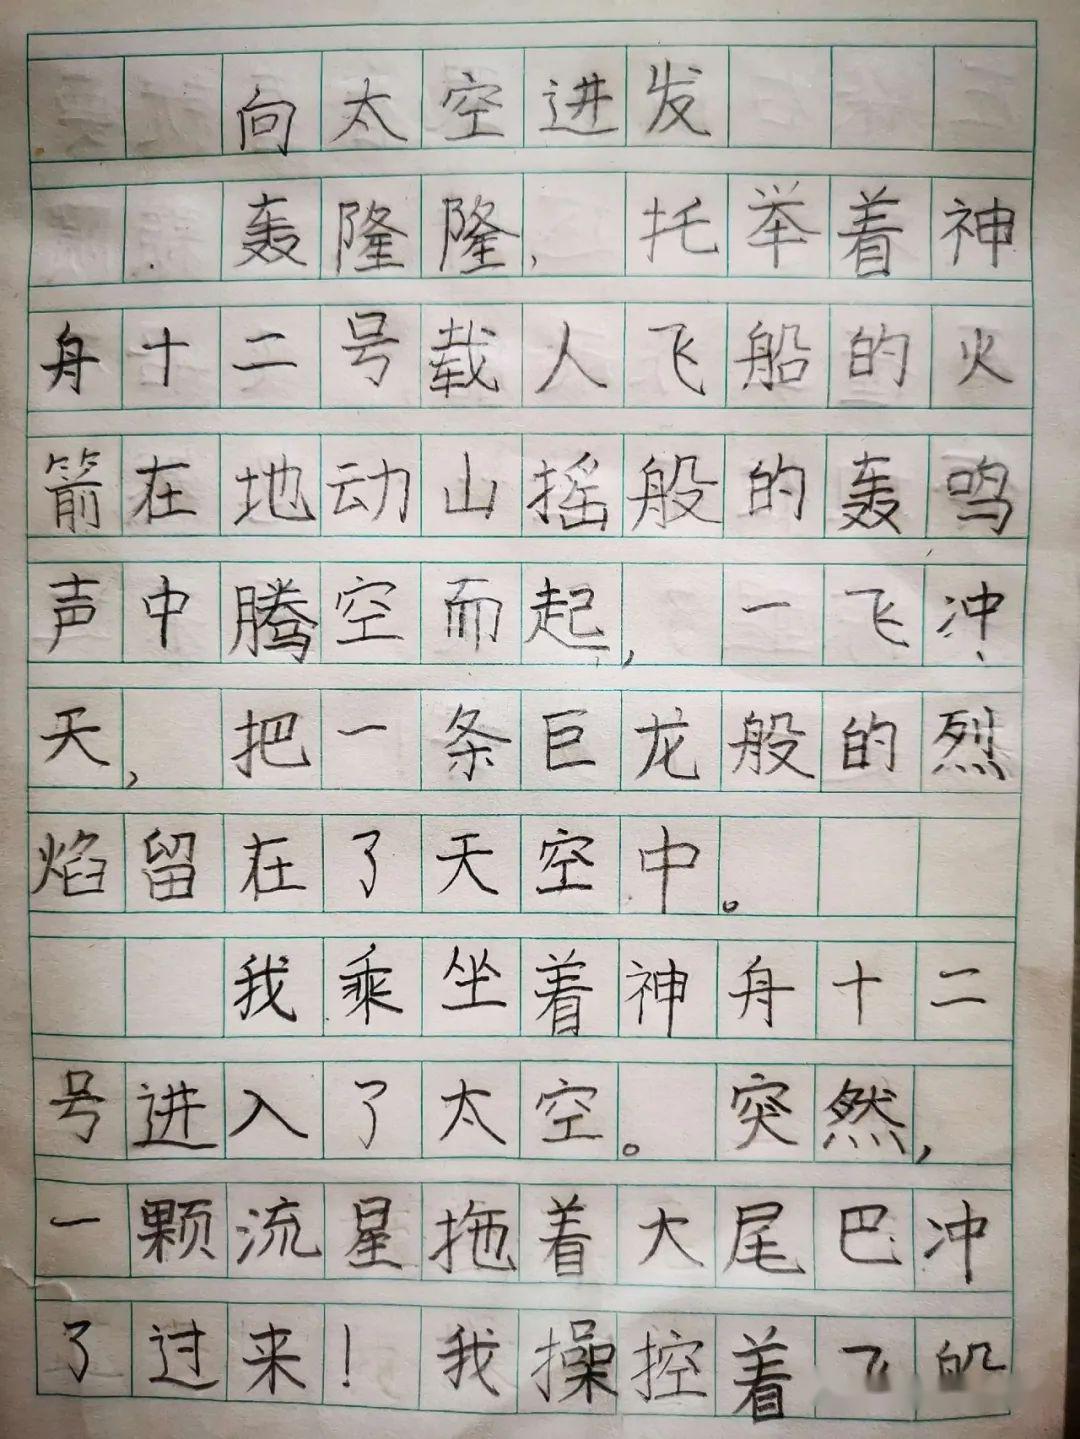 向太空进发
轰隆隆,托举着神
舟十二号载人飞船的火
箭在地动山摇般的轰鸣
声中腾空而起,一飞冲
天,把一条巨龙般的烈
焰留在了天空中。
我乘坐着神舟十二
号进入了太空。突然,
一颗流星拖着大尾巴冲
了过来!我操控着飞船